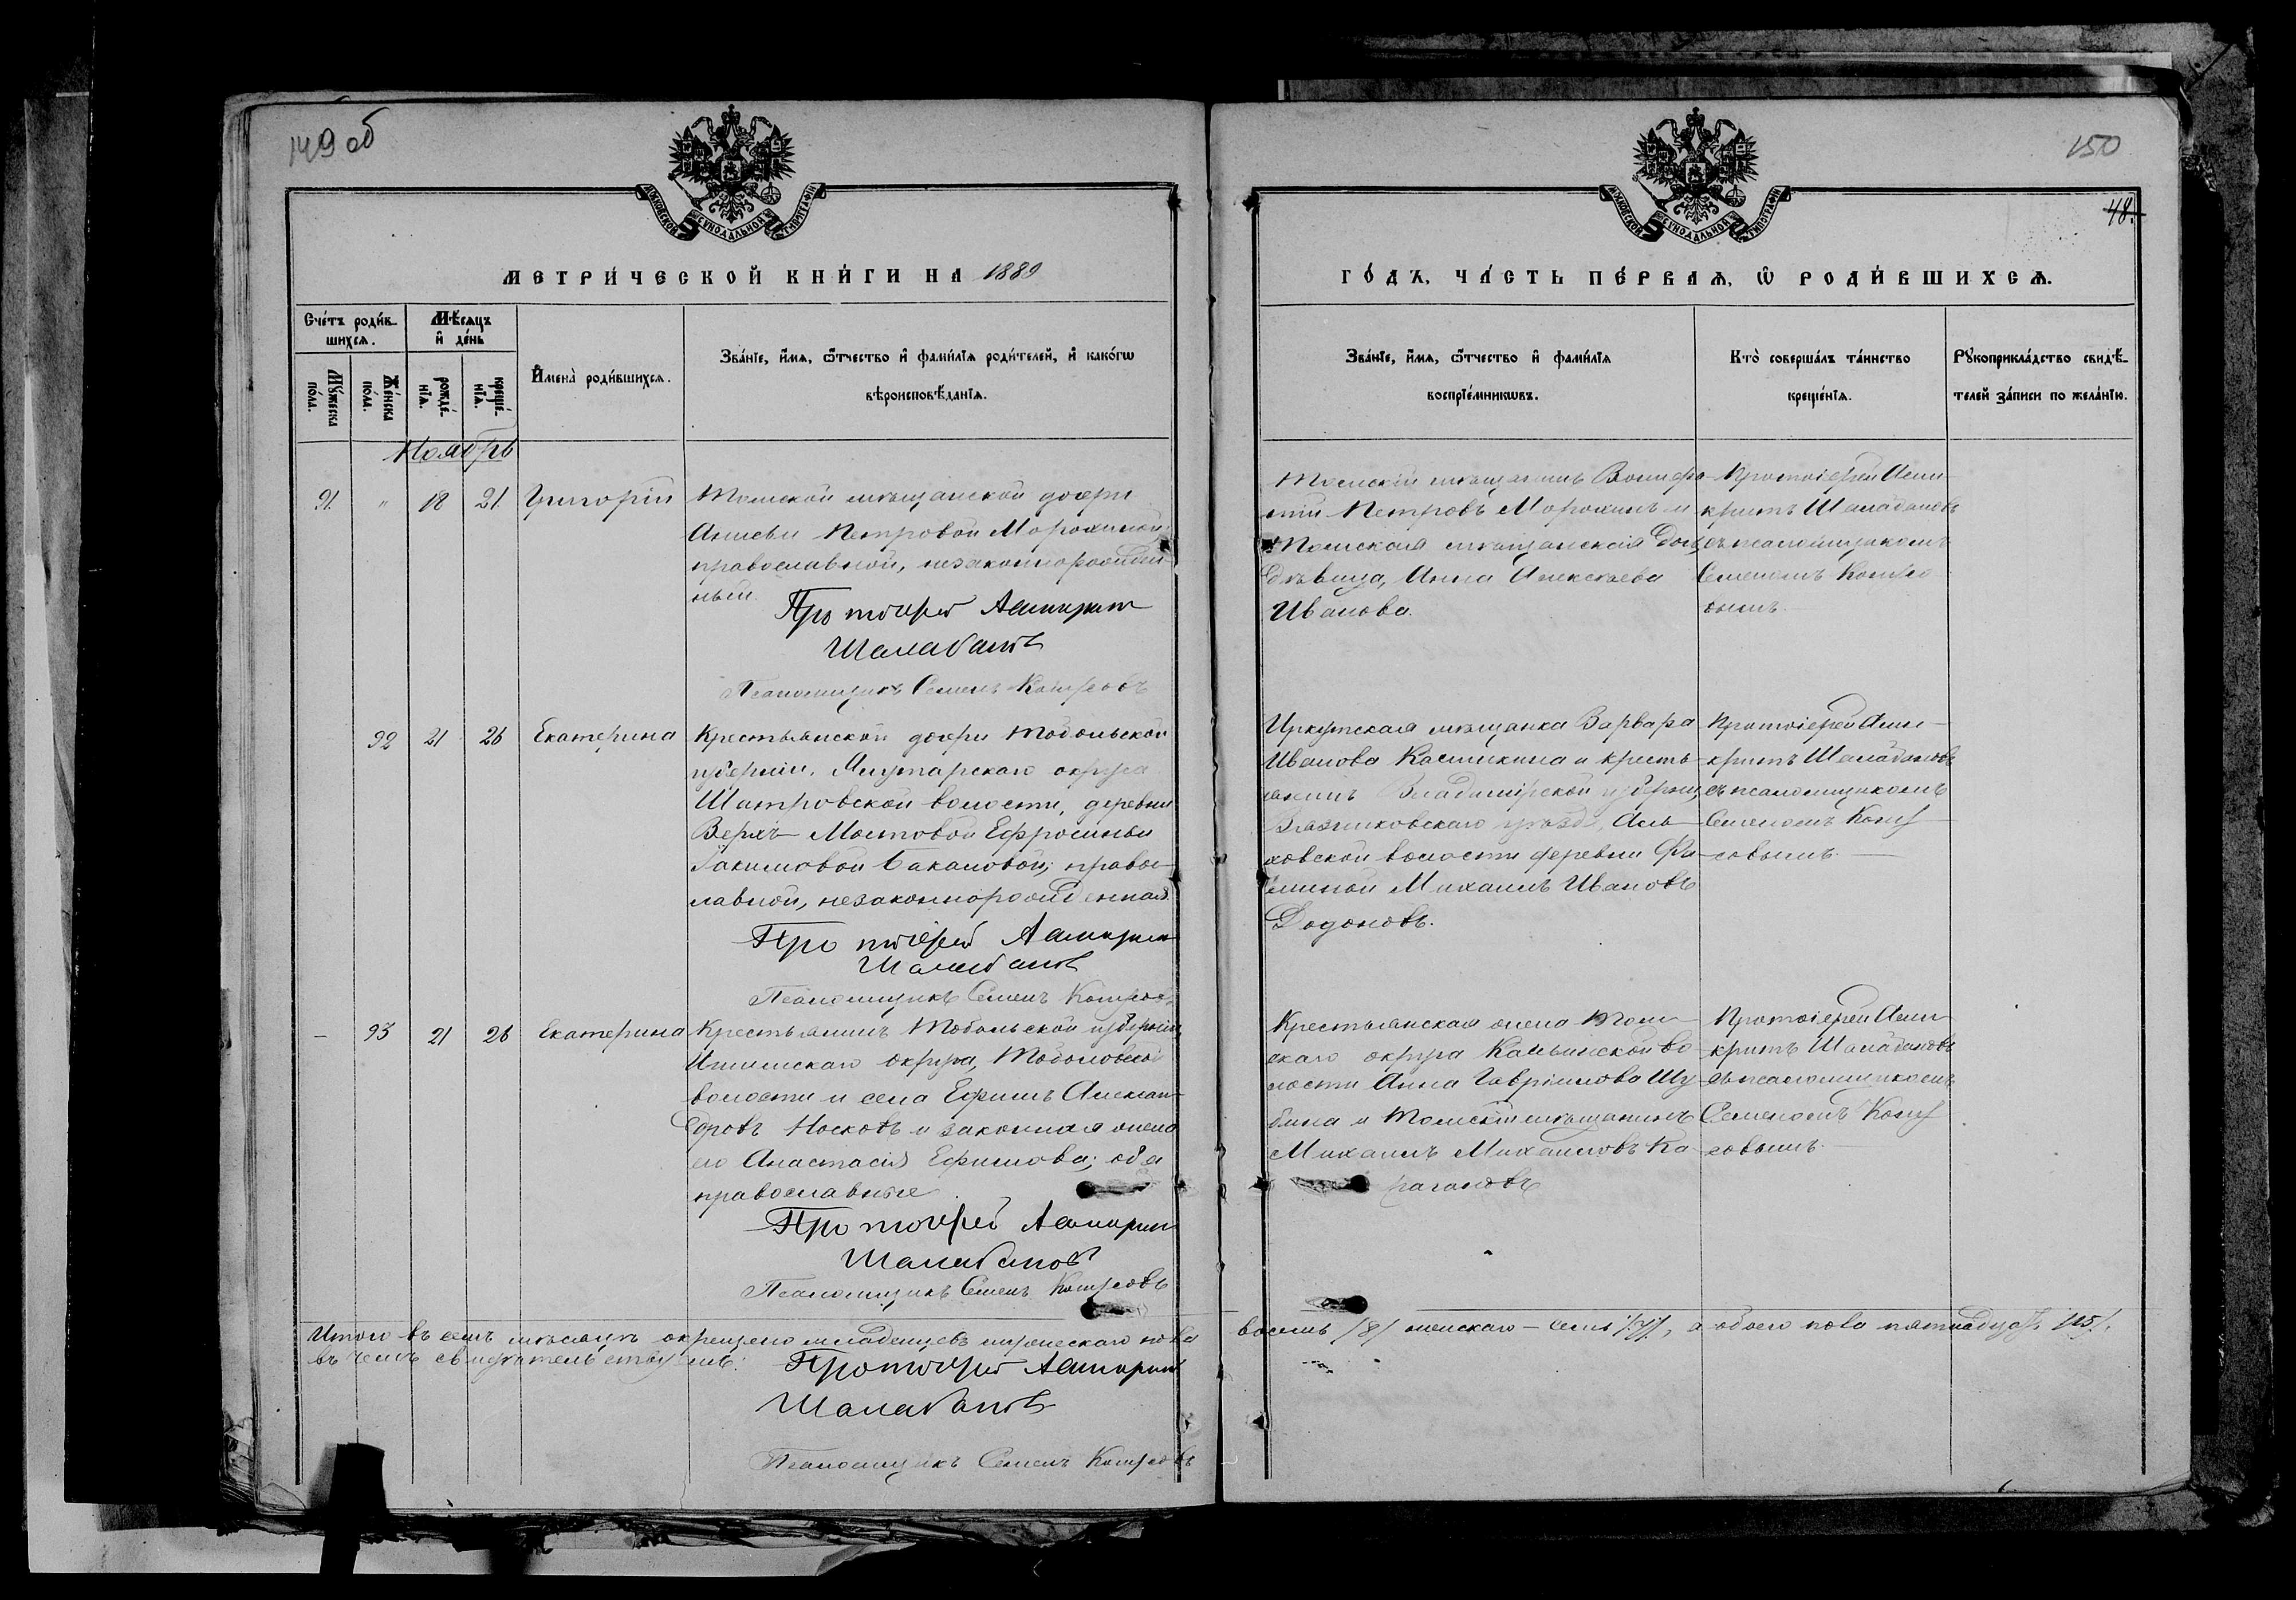 149 об
МОСКОВСКОЙ СѴНОДАЛЬНОЙ ТИПОГРАФІИ
МЕТРИ́ЧЕСКОЙ КНИ́ГИ НА 1889
Сче́тъ роди́в-
шихсѧ.
Мѣ́сѧцъ
и҆ де́нь
Мꙋ́жеска
по́ла.
Же́нска
по́ла.
рожде́-
нїѧ.
креще́-
нїѧ.
И҆мена̀ роди́вшихсѧ.
Зва́нїе, и҆́мѧ, ѻ҆́тчество и҆ фами́лїѧ роди́телей, и҆ како́гѡ
вѣроисповѣ́данїѧ.
Ноябрь
91. " 18 21. Григорій
Томской мѣщанской дочери
Анисьи Петровой Морохиной,
православной, незаконнорожден-
ный.
Протоіерей Асинкрит
Шалабанов
Псаломщикъ Семенъ Косыревъ
92 21 26 Екатерина
Крестьянской дочери Тобольской
губерніи, Ялуторскаго округа
Шатровской волости, деревни
Верхъ-Мостовой Ефросиньи
православной, незаконнорожденная.
Протоіерей Асинкрит
Шалабанов
Псаломщикъ Семенъ Косырев
– 93 21 26 Екатерина
Крестьянинъ Тобольской губерніи,
Ишимскаго округа, Тоболовской
волости и села Ефимъ Алексан-
дровъ Носковъ и законная жена
его Анастасія Ефимова; оба
православные.
Протоіерей Асинкрит
Шалабанов
Псаломщикъ Семенъ Косыревъ
Итого въ семъ мѣсяцѣ окрещено младенцевъ мужескаго пола
въ чемъ свидѣтельствуемъ:
Протоіерей Асинкрит
Шалабанов
Псаломщикъ Семенъ Косыревъ
150
48.
МОСКОВСКОЙ СѴНОДАЛЬНОЙ ТИПОГРАФІИ
ГО́ДЪ, ЧА́СТЬ ПЕ́РВАѦ, Ѡ҆ РОДИ́ВШИХСѦ.
Зва́нїе, и҆́мѧ, ѻ҆́тчество и҆ фами́лїѧ
воспрїе́мникѡвъ.
Кто̀ соверша́лъ та́инство
креще́нїѧ.
Рꙋкоприкла́дство свидѣ́-
телей за́писи по жела́нїю.
Томскій мѣщанинъ Вонифа-
тій Петровъ Морохинъ и
Томская мѣщанская дочь
дѣвица, Анна Алексѣева
Иванова.
Протоіерей Асин-
критъ Шалабановъ
съ псаломщикомъ
Семеномъ Косыре-
вымъ.
Иркутская мѣщанка Варвара
Иванова Касткина и кресть-
янинъ Владимірской губерніи,
Вязниковскаго уѣзда,
ховской волости деревни Фо-
миной Михаилъ Ивановъ
Додоновъ.
Протоіерей Асин-
критъ Шалабановъ
съ псаломщикомъ
Семеномъ Косы-
ревымъ.
Крестьянская жена Том-
скаго округа во-
лости Анна Гавріилова Шу-
бина и Томскій мѣщанинъ
Михаилъ Михаиловъ Ка-
Протоіерей Асин-
критъ Шалабановъ
съ псаломщикомъ
Семеномъ Косы-
ревымъ.
восемь /8/ женскаго – семь /7/, а обоего пола пятнадцать /15/.